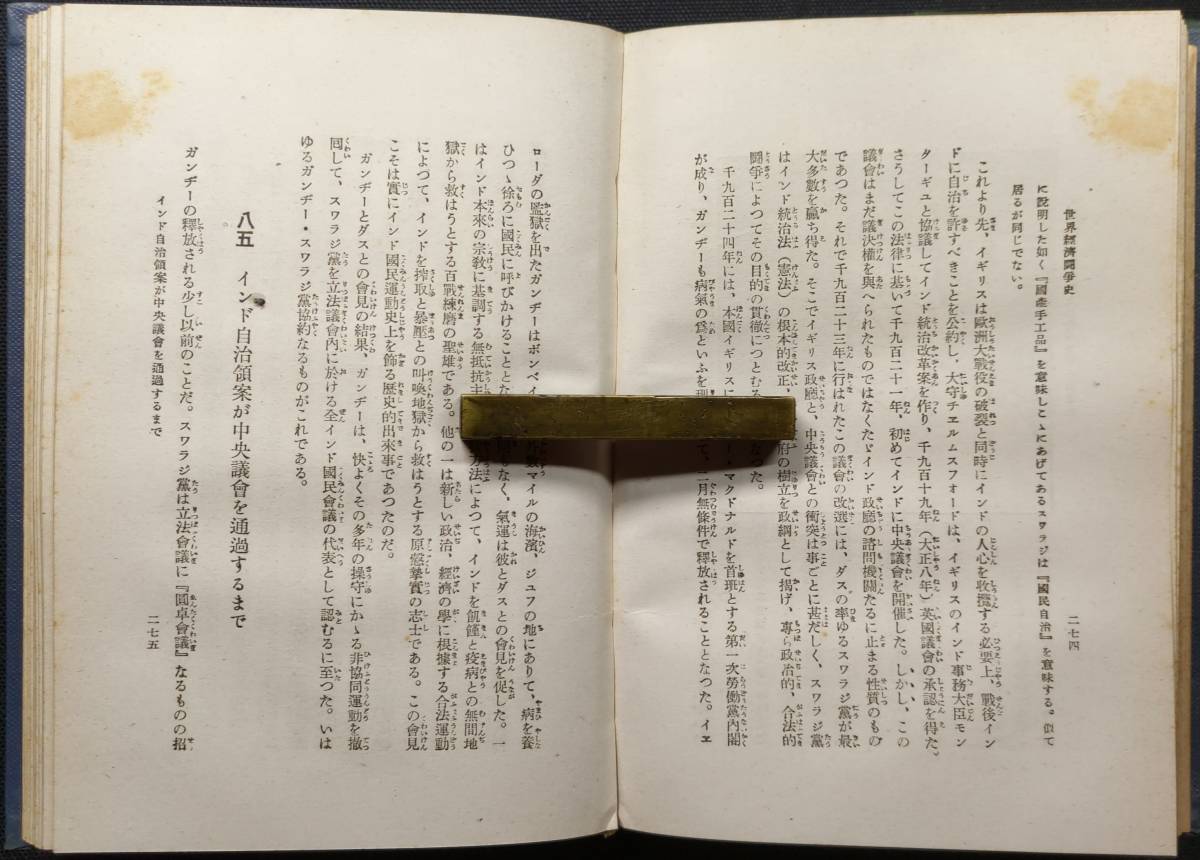 世界經濟鬪爭史
二七四
に說明した如く『國產手工品』を意味しこゝにあげてあるスワラジは『國民自治』を意味する。似て
居るが同じでない。
これより先、イギリスは歐洲大戰役の破裂と同時にインドの人心を收攬する必要上、戰後イン
ドに自治を許すべきことを公約し、大守チエルムスフォードは、イギリスのインド事務大臣モン
ターギュと協議してインド統治改革案を作り、千九百十九年(大正八年)英國議會の承認を得た。
さうしてこの法律に基いて千九百二十一年、初めてインドに中央議會を開催した。しかし、この
議會はまだ議決權を與へられたものではなくたゞインド政廳の諮問機關たるに止まる性質のもの
であつた。それで千九百二十三年に行はれたこの議會の改選には、ダスの率ゆるスワラジ黨が最
大多數を贏ち得た。そこでイギリス政廳と、中央議會との衝突は事ごとに甚だしく、スワラジ黨
はインド統治法(憲法)の根本的改正、府の樹立を政綱として揭げ、專ら政治的、合法的
鬪爭によつてその目的の貫徹につとむる なつた。
千九百二十四年には、本國イギリスに マクドナルドを首班とする第一次勞働黨內閣
が成り、ガンヂーも病氣の爲といふを理 て、二月無條件で釋放されることとなつた。イエ
ローダの監獄を出たガンヂーはボンベイ 數マイルの海濱、ジユフの地にありて、病を養
ひつゝ徐ろに國民に呼びかけることとな なく、氣運は彼とダスとの會見を促した。一
はインド本來の宗敎に基調する無抵抗主 方法によつて、インドを飢饉と疫病との無間地
獄から救はうとする百戰練磨の聖雄である。他の一は新しい政治、經濟の學に根據する合法運動
によつて、インドを搾取と暴壓との叫喚地獄から救はうとする原愨摯實の志士である。この會見
こそは實にインド國民運動史上を飾る歷史的出來事であつたのだ。
ガンヂーとダスとの會見の結果、ガンヂーは、快よくその多年の操守にかゝる非協同運動を撤
囘して、スワラジ黨を立法議會內に於ける全インド國民會議の代表として認むるに至つた。いは
ゆるガンヂー・スワラジ黨協約なるものがこれである。
八五 インド自治領案が中央議會を通過するまで
ガンヂーの釋放される少し以前のことだ。スワラジ黨は立法會議に『圓卓會議』なるものの招
インド自治領案が中央議會を通過するまで
二七五